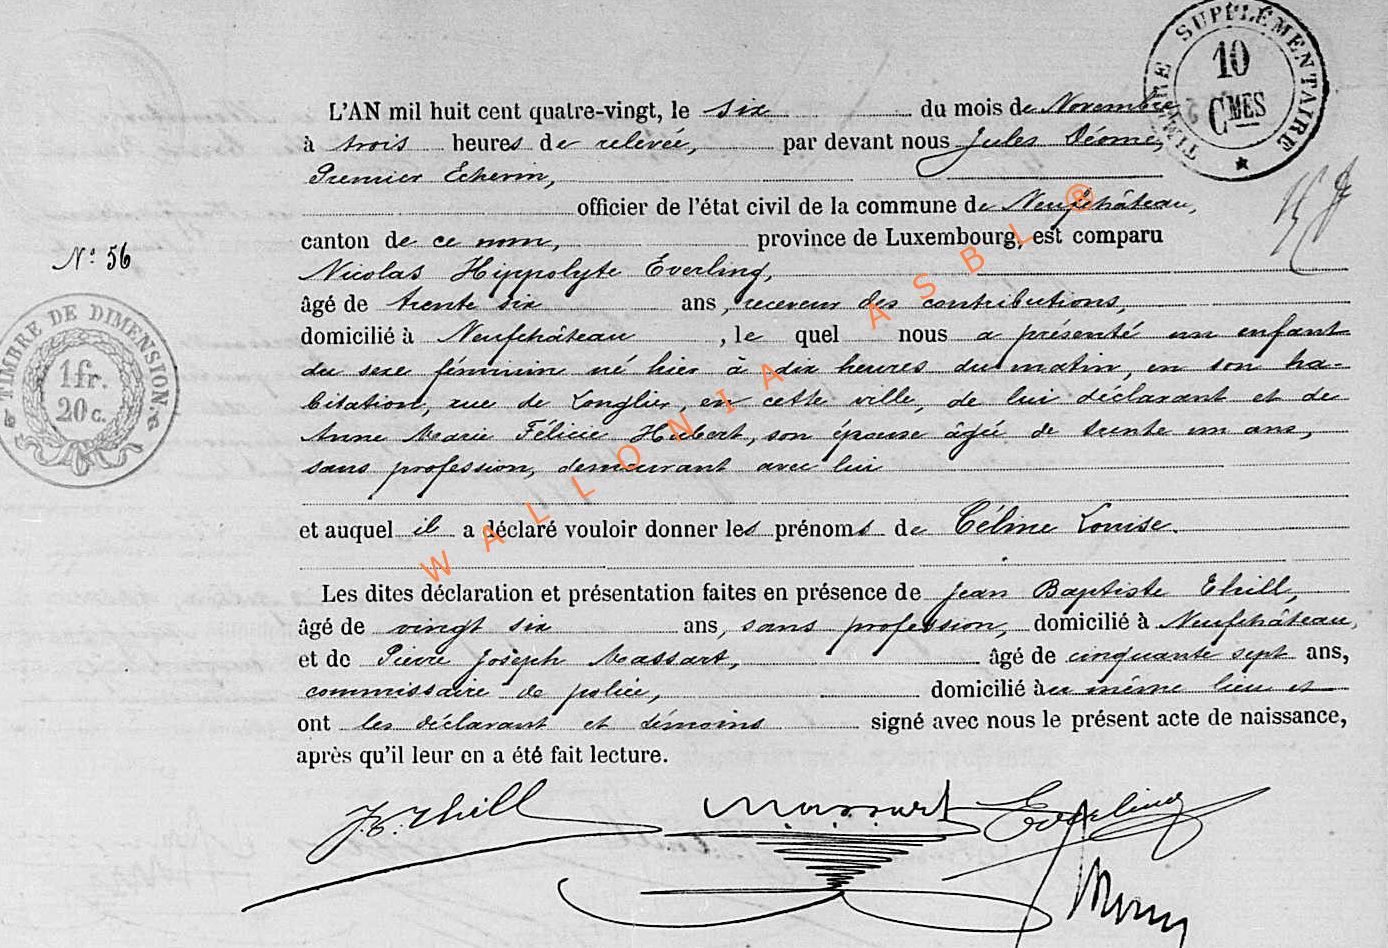 TIMBRE SUPPLÉMENTAIRE
10
CMES
L'AN mil huit cent quatre-vingt, le six du mois de Novembre
à trois heures de relevée, par devant nous Jules Déome,
Premier Echevin,
officier de l'état civil de la commune de Neufchâteau,
canton de ce nom, province de Luxembourg, est comparu
N° 56
Nicolas Hippolyte Everling,
âgé de trente six ans, receveur des contributions,
domicilié à Neufchâteau, le quel nous a présenté un enfant
du sexe féminin né hier à dix heures du matin, en son ha-
bitation, rue de Longlier, en cette ville, de lui déclarant et de
Anne Marie Félicie Hubert, son épouse âgée de trente un ans,
sans profession, demeurant avec lui
TIMBRE DE DIMENSION.
1 fr.
20 c.
et auquel il a déclaré vouloir donner les prénoms de Céline Louise.
Les dites déclaration et présentation faites en présence de Jean Baptiste Thill,
âgé de vingt six ans, sans profession, domicilié à Neufchâteau,
et de Pierre Joseph Massart, âgé de cinquante sept ans,
commissaire de police, domicilié au même lieu et
ont les déclarant et témoins signé avec nous le présent acte de naissance,
après qu'il leur en a été fait lecture.
J.B. Thill Massart Everling
WALLONIA ASBL ®